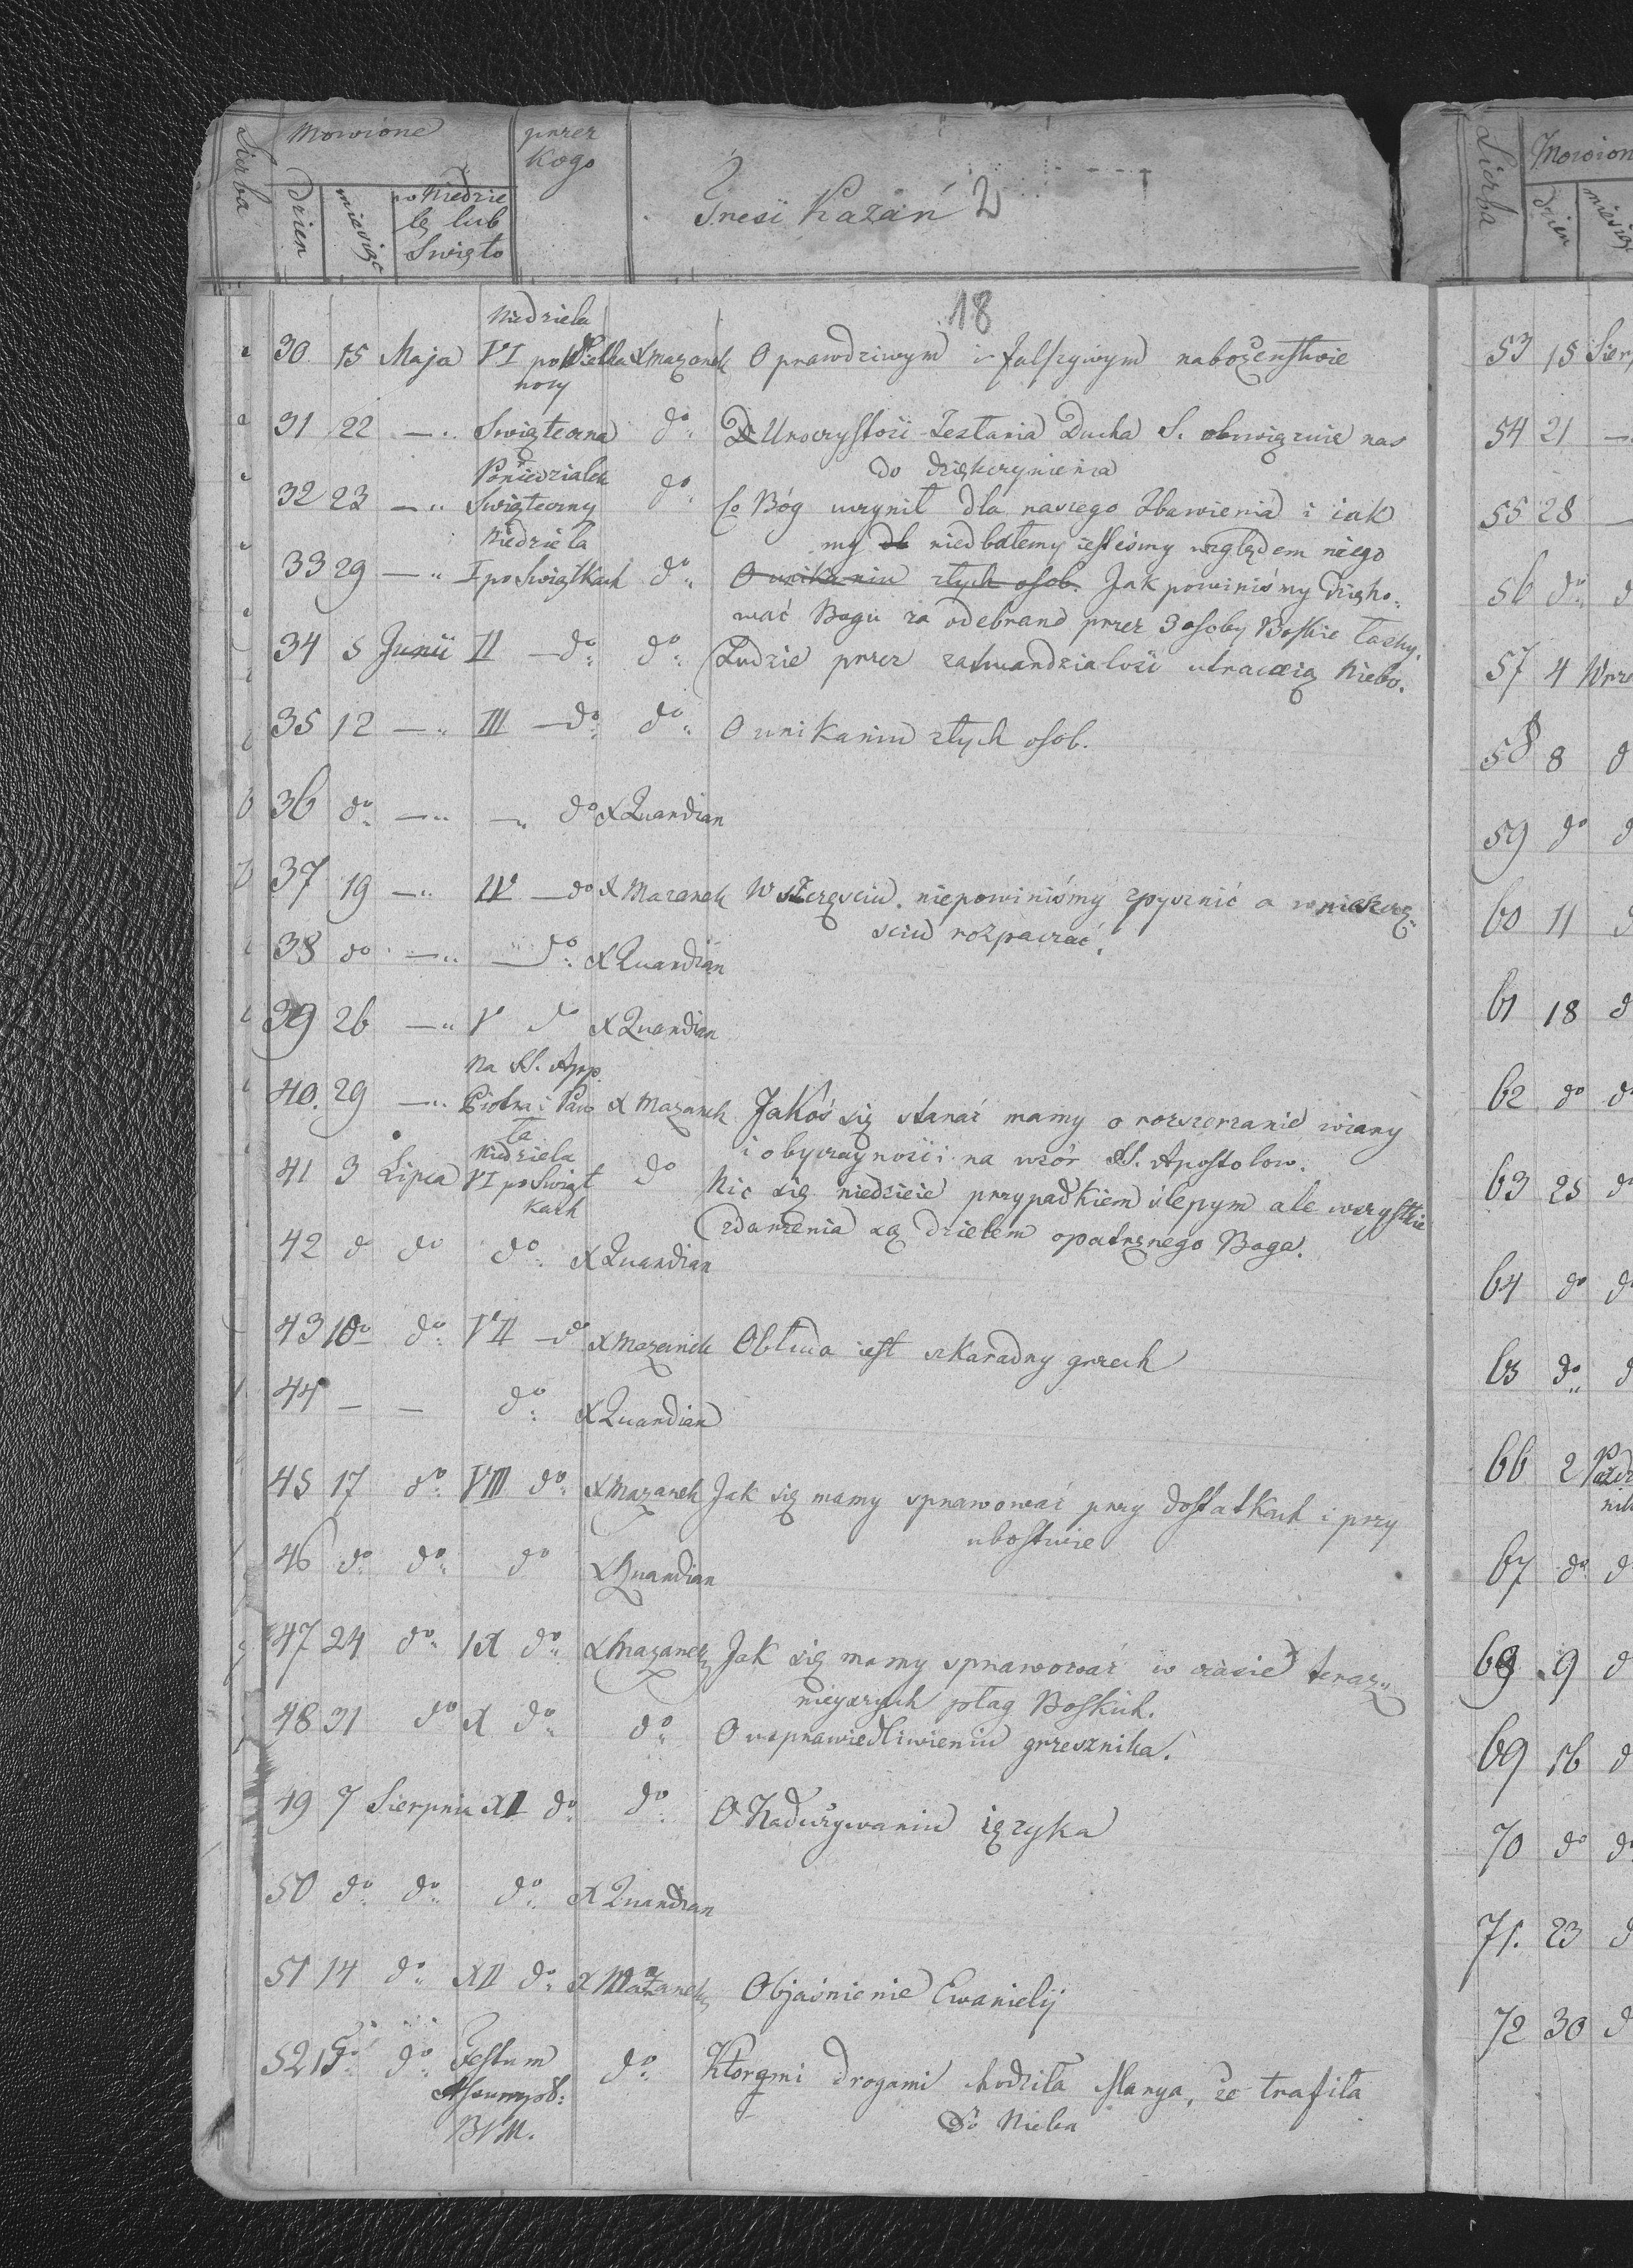 Liczba Mowione przez Kogo Treść Kazań 2
Dzien miesiąc w Niedzielę lub Swięto
18
30 15 Maja Niedziela VI po Wielkanocy X Mazanek O prawdziwym i falszywym nabożeństwie
31 22 —„ Swiąteczna do „ Uroczystość Zesłania Ducha S. obowiązuie nas
do dziękczynienia
32 23 —„ Poniedziałek Swiąteczny do „ Co Bóg uczynił dla naszego Zbawienia i iak
my niedbałemy iesteśmy względem niego
33 29 —„ Niedziela I po Swiątkach do „ O unikaniu złych osób. Jak powiniśmy dzięko=
wać Bogu za odebrane przez 3 osoby Boskie łaski.
34 5 Junii II —do „ do „ Ludzie przez zatwardziałość utracaią Niebo.
35 12 —„ III —do „ do „ O unikaniu złych osób.
36 do „ —„ —„ do X Quardian
37 19 —„ IV —do X Mazanek W szczęsciu niepowiniśmy zpysznić a w nieszczę=
sciu rozpaczać.
38 do —„ — do „ X Quardian
39 26 —„ V do X Quardian
40. 29 —„ Na SS. App. Piotra i Pawła X Mazanek Jakoś się starać mamy o rozszerzanie wiary
i obyczayności na wzór SS. Apostolow.
41 3 Lipca Niedziela VI po Swiątkach do Nic się niedzieie przypadkiem ślepym ale wszystkie
zdarzenia są dziełem opatrznego Boga.
42 d do do „ X Quardian
43 10 do „ VII —do X Mazanek Obłuda iest szkaradny grzech
44 — — do „ X Quardian
45 17 do „ VIII do „ X Mazanek Jak się mamy sprawować przy dostatkach i przy
ubostwie
46 do do „ do X Quardian
47 24 do „ IX do „ X Mazanek Jak się mamy sprawować w czasie teraz=
nieyszych plag Boskich.
48 31 do X do „ do „ O usprawiedliwieniu grzesznika.
49 7 Sierpnia XI do „ do „ O Nadużywaniu ięzyka
50 do „ do „ do „ X Quardian
51 14 do „ XII do „ X Mazanek Objaśnienie Ewanielij
52 15 do „ Festum Assumpt: BVM. do „ Ktoremi drogami chodziła Marya, że trafiła
do Nieba
Liczba Mowion
dzien miesiąc
53 15 Sierp
54 21 —
55 28 —
56 do „ d
57 4 Wrze
58 8 d
59 do d
60 11 d
61 18 d
62 do do
63 25 do
64 do do
65 do „ d
66 2 Paźdz
nik
67 do do
68 9 d
69 16 d
70 do do
71. 23 d
72 30 d